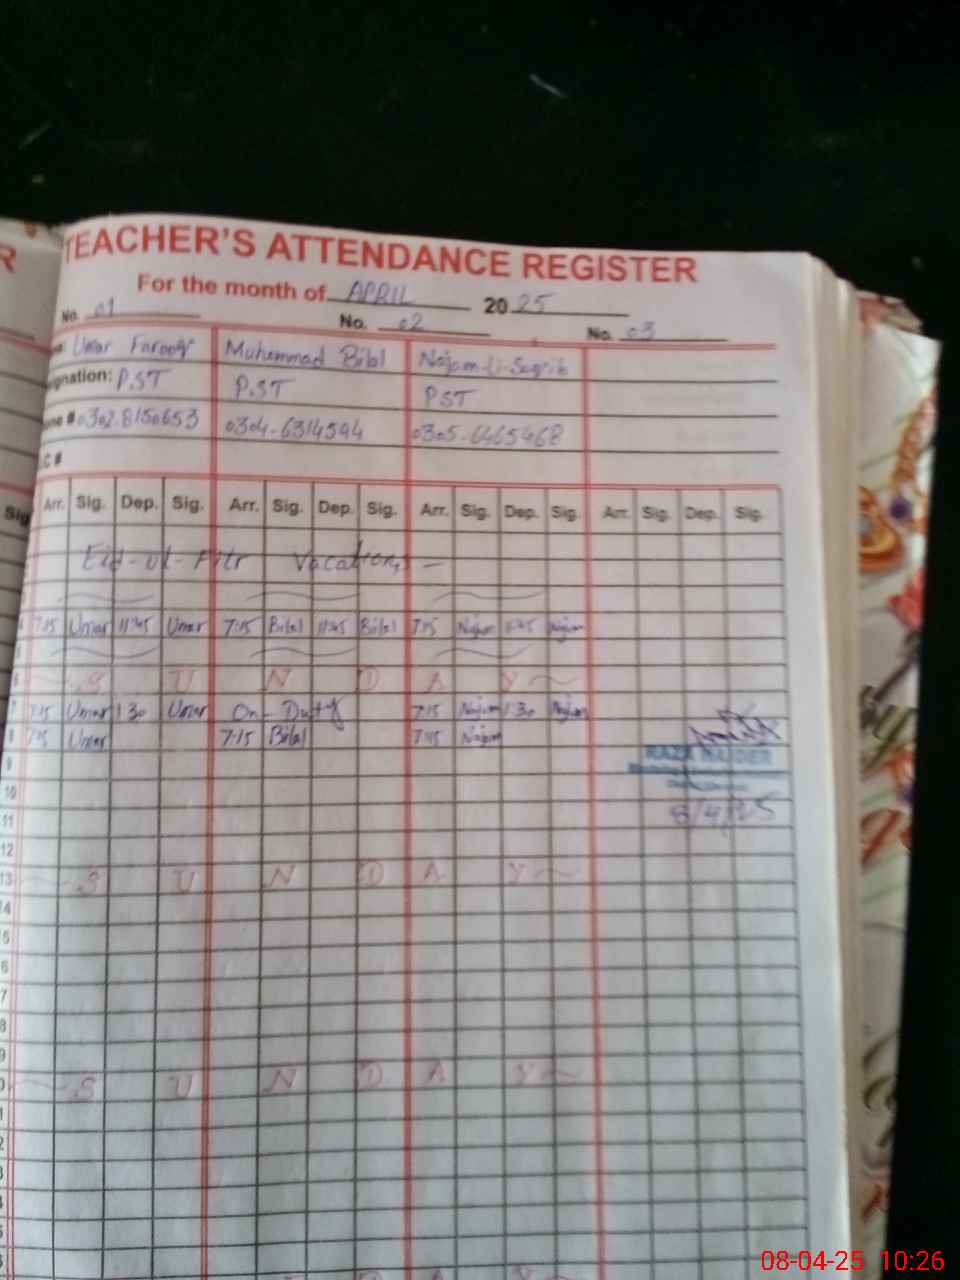 R
TEACHER'S ATTENDANCE REGISTER
For the month of APRIL 2025
No. 01 No. 02 No. 03
Umar Farooq Muhammad Bilal Najam-Li-Saqib
ignation: P.ST P.ST PST
one # 0302-8150653 0304-6314594 0305-6465468
C #
Sig Arr. Sig. Dep. Sig. Arr. Sig. Dep. Sig. Arr. Sig. Dep. Sig. Arr. Sig. Dep. Sig.
Eid-ul-Fitr Vacations
7:15 Umar 11:45 Umar 7:15 Bilal 11:45 Bilal 7:15 Najam 11:45 Najam
6 S U N D A Y
7 7:15 Umar 1:30 Umar On-Duty 7:15 Najam 1:30 Najam
8 7:15 Umar 7:15 Bilal 7:15 Najam
9 RAZA HAIDER
10
11 8/4/25
12
13 S U N D A Y
14
5
6
7
8
9
0 S U N D A Y
1
2
3
4
5
6
08-04-25 10:26